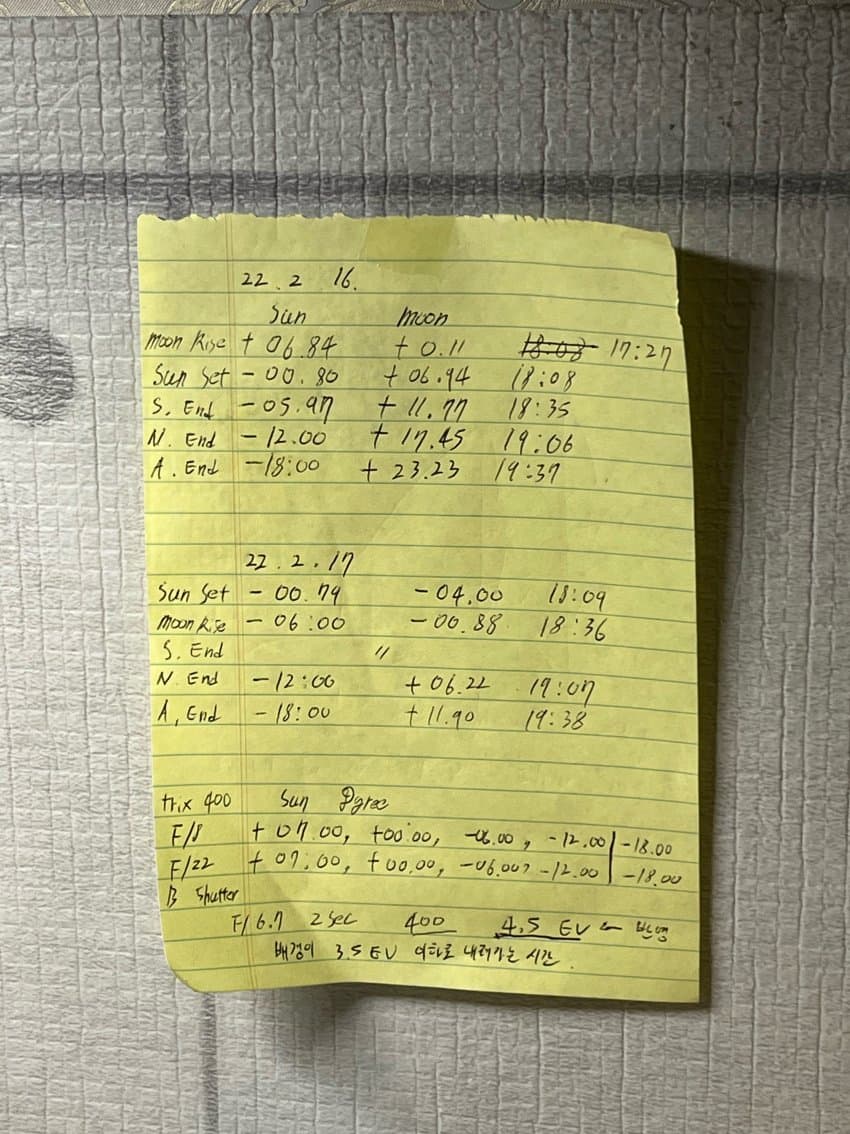 22 . 2 16.
Sun moon
Moon Rise + 06.84 + 0.11 18:08 17:27
Sun Set - 00.80 + 06.94 18:08
S. End - 05.97 + 11.77 18:35
N. End - 12.00 + 17.45 19:06
A. End -18:00 + 23.23 19:37
22 . 2 . 17
Sun Set - 00.79 - 04.00 18:09
Moon Rise - 06:00 - 00.88 18:36
S. End "
N. End - 12:00 + 06.22 19:07
A, End - 18:00 + 11.90 19:38
trix 400 Sun Dgree
F/8 + 07.00, +00.00, -06.00, -12.00 | -18.00
F/22 + 07.00, +00.00, -06.00, -12.00 | -18.00
B Shutter
F/6.7 2 Sec 400 4.5 EV ← 반영
배경이 3.5 EV 이하로 내려가는 시간.